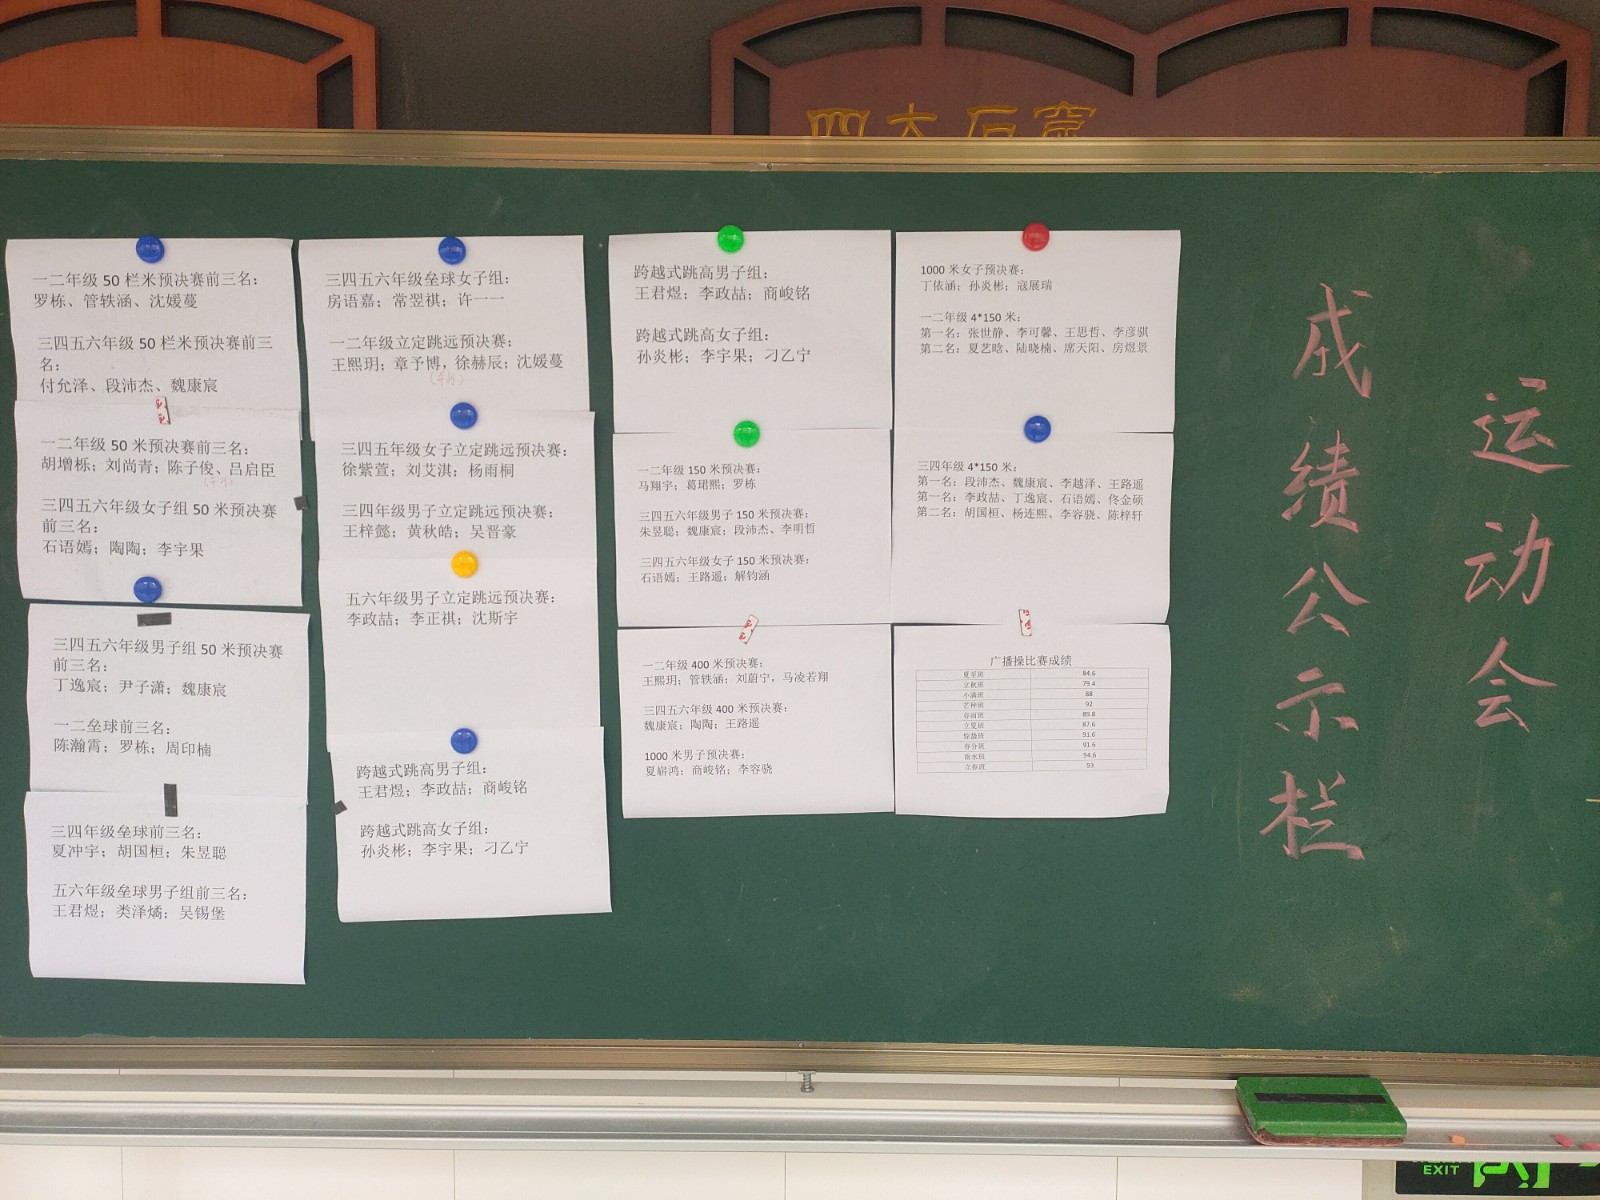 四大石窟
运动会
成绩公示栏
一二年级 50 栏米预决赛前三名：
罗栋、管轶涵、沈媛蔓
三四五六年级 50 栏米预决赛前三
名：
付允泽、段沛杰、魏康宸
一二年级 50 米预决赛前三名：
胡增栎；刘尚青；陈子俊、吕启臣
（并列）
三四五六年级女子组 50 米预决赛
前三名：
石语嫣；陶陶；李宇果
三四五六年级男子组 50 米预决赛
前三名：
丁逸宸；尹子潇；魏康宸
一二垒球前三名：
陈瀚霄；罗栋；周印楠
三四年级垒球前三名：
夏冲宇；胡国桓；朱昱聪
五六年级垒球男子组前三名：
王君煜；类泽燏；吴锡堡
三四五六年级垒球女子组：
房语嘉；常翌祺；许一一
一二年级立定跳远预决赛：
王熙玥；章予博，徐赫辰；沈媛蔓
（并列）
三四五年级女子立定跳远预决赛：
徐紫萱；刘艾淇；杨雨桐
三四年级男子立定跳远预决赛：
王梓懿；黄秋皓；吴晋豪
五六年级男子立定跳远预决赛：
李政喆；李正祺；沈斯宇
跨越式跳高男子组：
王君煜；李政喆；商峻铭
跨越式跳高女子组：
孙炎彬；李宇果；刁乙宁
跨越式跳高男子组：
王君煜；李政喆；商峻铭
跨越式跳高女子组：
孙炎彬；李宇果；刁乙宁
一二年级 150 米预决赛：
马翔宇；葛珺熙；罗栋
三四五六年级男子 150 米预决赛：
朱昱聪；魏康宸；段沛杰、李明哲
三四五六年级女子 150 米预决赛：
石语嫣；王路遥；解钧涵
一二年级 400 米预决赛：
王熙玥；管轶涵；刘蔚宁，马凌若翔
三四五六年级 400 米预决赛：
魏康宸；陶陶；王路遥
1000 米男子预决赛：
夏崭鸿；商峻铭；李容骁
1000 米女子预决赛：
丁依涵；孙炎彬；寇展瑞
一二年级 4*150 米：
第一名：张世静、李可馨、王思哲、李彦骐
第二名：夏艺晗、陆晓楠、席天阳、房煜景
三四年级 4*150 米：
第一名：段沛杰、魏康宸、李越泽、王路遥
第一名：李政喆、丁逸宸、石语嫣、佟金硕
第二名：胡国桓、杨连熙、李容骁、陈梓轩
广播操比赛成绩
夏至班 84.6
立秋班 79.4
小满班 88
芒种班 92
谷雨班 89.8
立夏班 87.6
惊蛰班 91.6
春分班 91.6
雨水班 94.6
立春班 93
EXIT